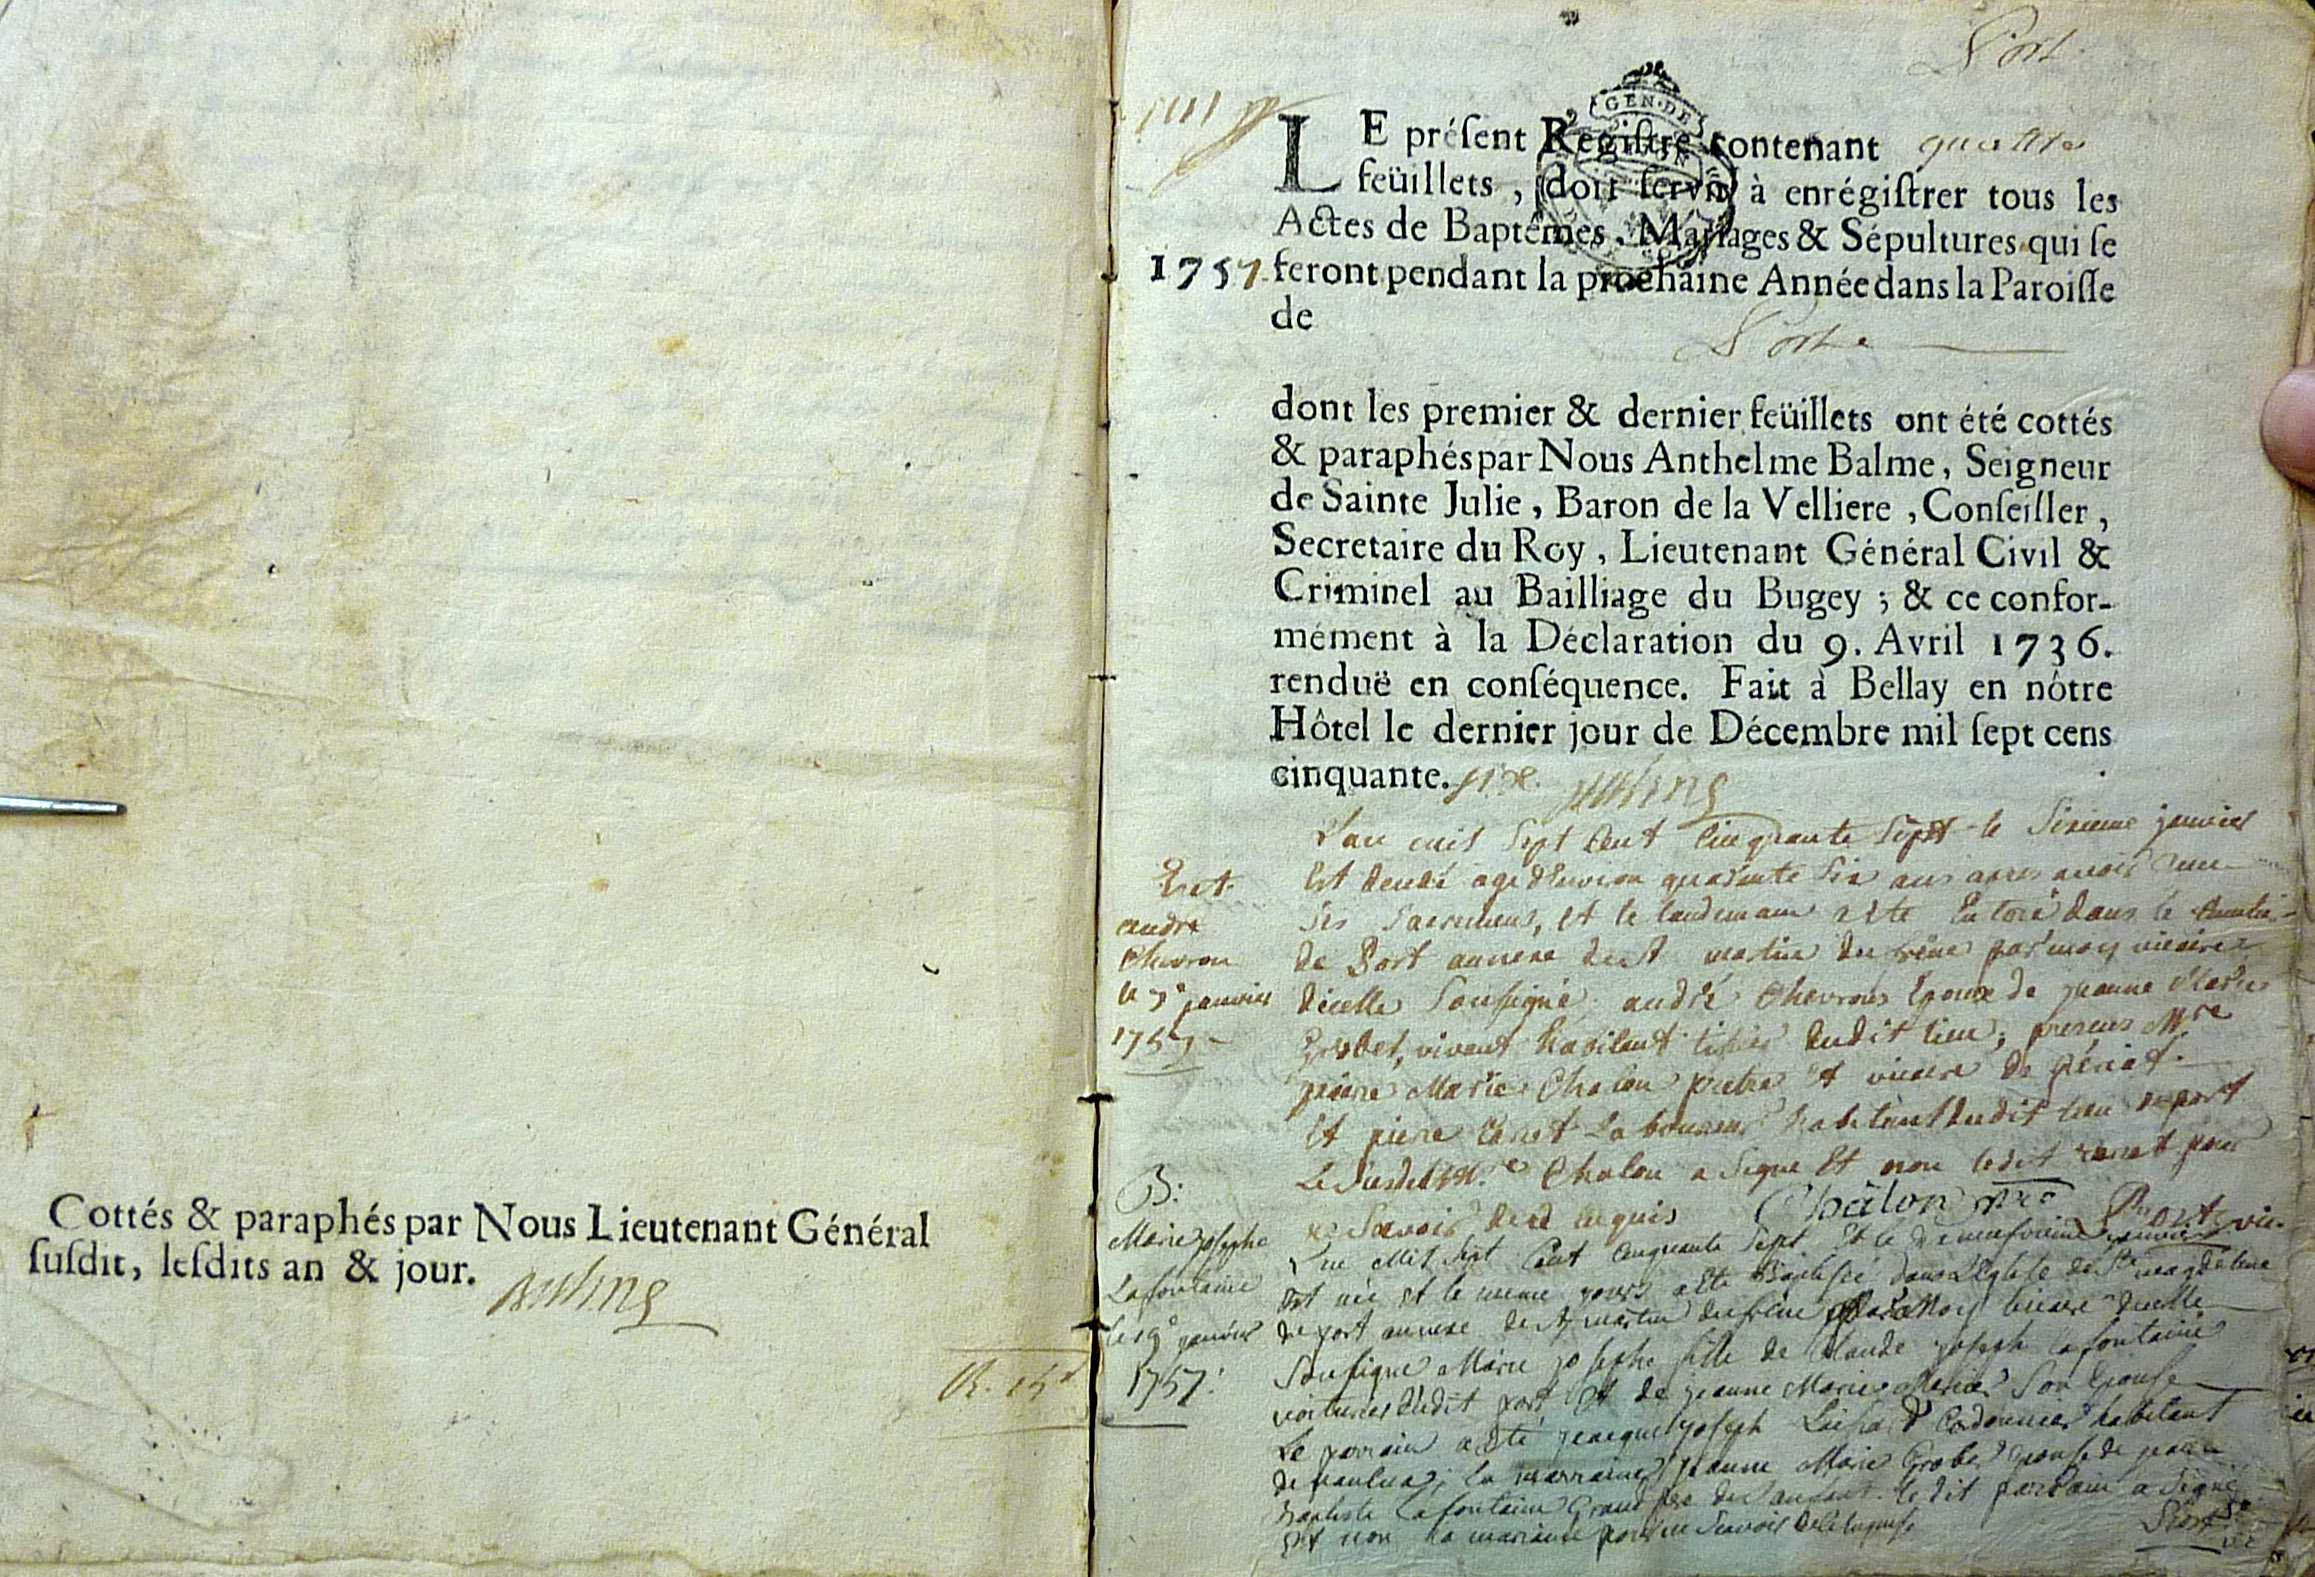 Cottés & paraphés par Nous Lieutenant Général
ſuſdit, leſdits an & jour.
Port
GEN·DE
LE préſent Regiſtre contenant quattre
feüillets, doit ſervir à enrégiſtrer tous les
Actes de Baptêmes, Mariages & Sépultures qui ſe
1757 feront pendant la prochaine Année dans la Paroiſſe
de
Port
dont les premier & dernier feüillets ont été cottés
& paraphés par Nous Anthelme Balme, Seigneur
de Sainte Julie, Baron de la Velliere, Conſeiller,
Secretaire du Roy, Lieutenant Général Civil &
Criminel au Bailliage du Bugey; & ce confor-
mément à la Déclaration du 9. Avril 1736.
renduë en conſéquence. Fait à Bellay en nôtre
Hôtel le dernier jour de Décembre mil ſept cens
cinquante. six
L'an mil Sept Cent Cinquante Sept le Sixieme janvier
Est decedé agé d'Environ quarante Six ans apres avoir
Ses Sacremens, et le landemain a ete Enterré dans le
de Port annexe de St martin du frêne par moy vicaire
dicelle Soussigné, andré Chevron Epoux de jeanne Marie
Grobet, vivant habitant dudit lieu; presens Mre
pierre Marie Chalon pretre et vicaire de
Et pierre Laboureur habitant dudit lieu de port
Le Susdit Mre Chalon a Signe Et non ledit pour
ne Savoir de ce enquis Châlon
andré
Chevron
le 7e janvier
1757
B:
Marie josephe
Lafontaine
le 19e janvier
1757:
L'an Mil Sept Cent Cinquante Sept Et le Dixneufvieme janvier
Est née et le meme jour a ete Baptisée dans L'Eglise de Ste magdelene
de port annexe de St martin du frêne par Moy vicaire dicelle
Soussigné Marie josephe fille de Claude joseph Lafontaine
voiturier dudit port Et de jeanne Marie Son Epouse
Le parrain a eté jacque joseph Cordonnier habitant
de nantua; La marraine jeanne Marie Grobet Epouse de jean
Baptiste Lafontaine Grand pere de l'anfant. ledit parrain a Signé
Et non la marraine pour ne Savoir de ce enquise